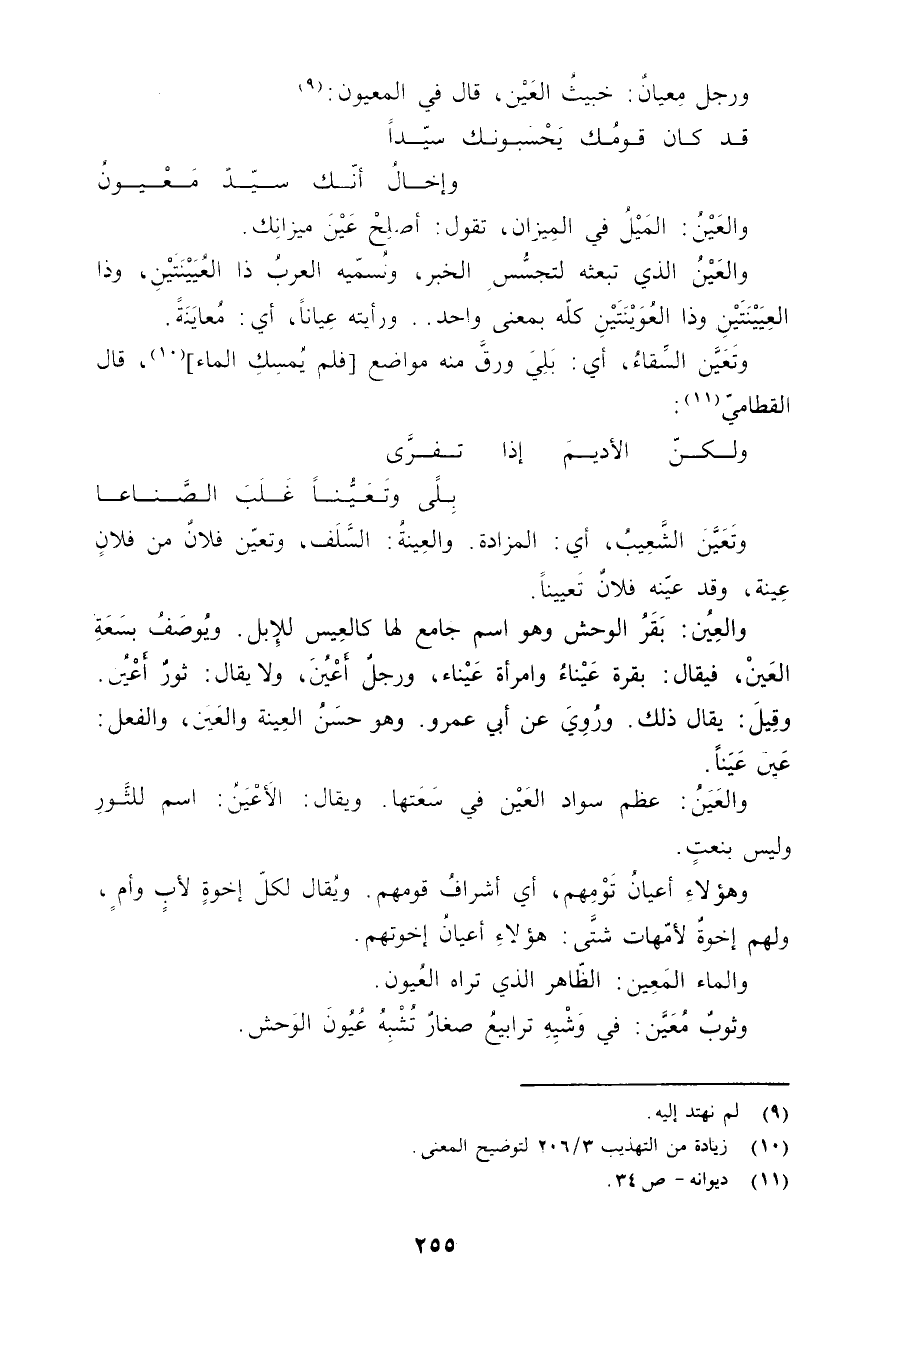 ورجل مِعيانٌ: خبيثُ العَيْن، قال في المعيون:(٩)
قـد كـان قـومُـك يَحْسَبـونـك سيّـداً
وإخـالُ أنّـك سـيّـدٌ مَـعْـيـونُ
والعَيْنُ: المَيْلُ في المِيزان، تقول: أَصلِحْ عَيْنَ ميزانِك.
والعَيْنُ الذي تبعثه لتجسُّسِ الخبر، ونُسمّيه العربُ ذا العُيَيْنَتَيْنِ، وذا
العِيَيْنَتَيْنِ وذا العُوَيْنَتَيْنِ كلّه بمعنى واحد.. ورأيته عِياناً، أي: مُعايَنَةً.
وتَعَيَّن السِّقاءُ، أي: بَلِيَ ورقَّ منه مواضع [فلم يُمسِكِ الماء](١٠)، قال
القطاميّ(١١):
ولـكـنّ الأديـمَ إذا تـفـرَّى
بِـلًى وتَـعَـيُّـنـاً غَـلَبَ الـصَّـنـاعـا
وتَعَيَّنَ الشَّعِيبُ، أي: المزادة. والعِينةُ: السَّلَف، وتعيّن فلانٌ من فلانٍ
عِينة، وقد عيّنه فلانٌ تَعييناً.
والعِيْنُ: بَقَرُ الوحش وهو اسم جامع لها كالعِيس للإبل. ويُوصَفُ بسَعَةِ
العَينْ، فيقال: بقرة عَيْناءُ وامرأة عَيْناء، ورجلٌ أَعْيَنُ، ولا يقال: ثورٌ أَعْيَن.
وقِيلَ: يقال ذلك. ورُوِيَ عن أبي عمرو. وهو حسَنُ العِينة والعَيَن، والفعل:
عَيِنَ عَيَناً.
والعَيَنُ: عظم سواد العَيْن في سَعَتها. ويقال: الأَعْيَنُ: اسم للثَّورِ
وليس بنعتٍ.
وهؤلاءِ أعيانُ قَوْمِهم، أي أشرافُ قومهم. ويُقال لكلّ إخوةٍ لأبٍ وأمٍ،
ولهم إخوةٌ لأمّهات شتَّى: هؤلاءِ أعيانُ إخوتهم.
والماء المَعِين: الظّاهر الذي تراه العُيون.
وثوبٌ مُعَيَّن: في وَشْيِهِ ترابيعُ صغارٌ تُشْبِهُ عُيُونَ الوَحش.
(٩) لم نهتد إليه.
(١٠) زيادة من التهذيب ٢٠٦/٣ لتوضيح المعنى.
(١١) ديوانه - ص ٣٤.
٢٥٥